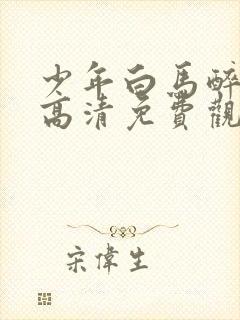 少年白馬醉
高清免費觀
宋偉生